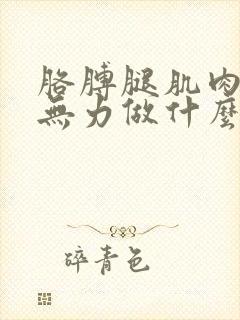 胳膊腿肌肉
無力做什麼
碎青色